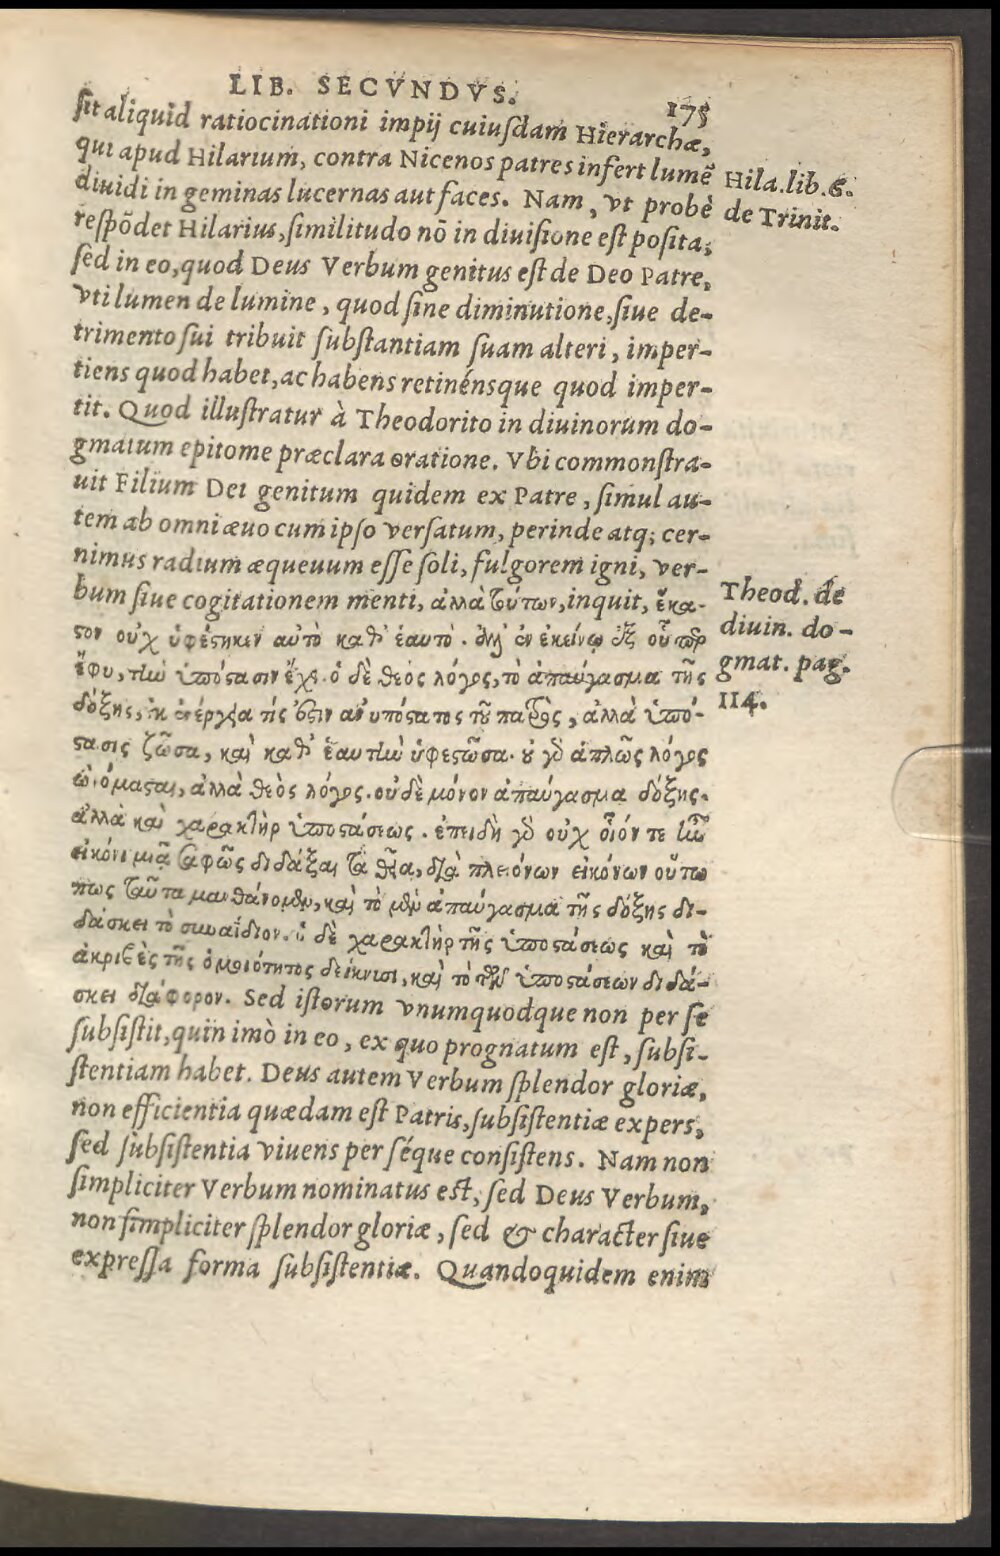 LIB. SECVNDVS.
175
sit aliquid ratiocinationi impij cuiusdam Hierarchæ,
qui apud Hilarium, contra Nicenos patres infert lumẽ
diuidi in geminas lucernas aut faces. Nam, vt probè
respõdet Hilarius, similitudo nõ in diuisione est posita;
sed in eo, quod Deus Verbum genitus est de Deo Patre,
vti lumen de lumine, quod sine diminutione, siue de-
trimento sui tribuit substantiam suam alteri, imper-
tiens quod habet, ac habens retinénsque quod imper-
tit. Quod illustratur à Theodorito in diuinorum do-
gmatum epitome præclara oratione. Vbi commonstra-
uit Filium Dei genitum quidem ex Patre, simul au-
tem ab omni æuo cum ipso versatum, perinde atq; cer-
nimus radium æqueuum esse soli, fulgorem igni, ver-
bum siue cogitationem menti, ἀλλὰ τούτων, inquit, ἕκα-
στον οὐχ ὑφέστηκεν αὐτὸ καθ' ἑαυτὸ. ἀλλ' ἐν ἐκείνῳ ἐξ οὗπερ
ἔφυ, τὴν ὑπόστασιν ἔχει. ὁ δὲ θεὸς λόγος, τὸ ἀπαύγασμα τῆς
δόξης, οὐκ ἐνέργειά τίς ἐστιν ἀνυπόστατος τοῦ πατρὸς, ἀλλὰ ὑπό-
στασις ζῶσα, καὶ καθ' ἑαυτὴν ὑφεστῶσα. οὐ γὰρ ἁπλῶς λόγος
ὠνόμασται, ἀλλὰ θεὸς λόγος. οὐδὲ μόνον ἀπαύγασμα δόξης.
ἀλλὰ καὶ χαρακτὴρ ὑποστάσεως. ἐπειδὴ γὰρ οὐχ οἷόν τε ἦν
εἰκόνι μιᾷ σαφῶς διδάξαι τὰ θεῖα, διὰ πλειόνων εἰκόνων οὕτω
πως ταῦτα μανθάνομεν, καὶ τὸ μὲν ἀπαύγασμα τῆς δόξης δι-
δάσκει τὸ συναΐδιον. ὁ δὲ χαρακτὴρ τῆς ὑποστάσεως καὶ τὸ
ἀκριβὲς τῆς ὁμοιότητος δείκνυσι, καὶ τὸ τῶν ὑποστάσεων διδά-
σκει διάφορον. Sed istorum vnumquodque non per se
subsistit, quin imò in eo, ex quo prognatum est, subsi-
stentiam habet. Deus autem Verbum splendor gloriæ,
non efficientia quædam est Patris, subsistentiæ expers,
sed subsistentia viuens per séque consistens. Nam non
simpliciter Verbum nominatus est, sed Deus Verbum,
non simpliciter splendor gloriæ, sed & character siue
expressa forma subsistentiæ. Quandoquidem enim
Hila. lib. 6.
de Trinit.
Theod. de
diuin. do-
gmat. pag.
114.